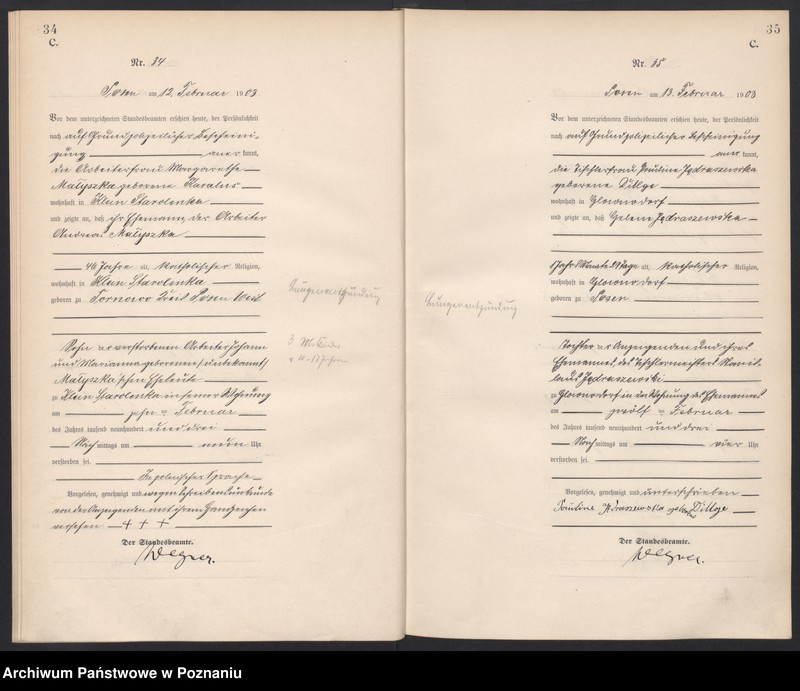 34
C.
Nr. 34
Posen am 12. Februar 1903
Vor dem unterzeichneten Standesbeamten erschien heute, der Persönlichkeit
nach auf Grund polizeilicher Bescheini-
gung aner kannt,
die Arbeiterfrau Margarethe
Matyszka geborene
wohnhaft in Klein Starolenka
und zeigte an, daß ihr Ehemann, der Arbeiter
Andreas Matyszka
46 Jahre alt, katholischer Religion,
wohnhaft in Klein Starolenka
geboren zu Tarnowo Kreis Posen West
Sohn der verstorbenen Arbeiter Johann
und Marianna geborenen (unbekannt)
Matyszka'schen Eheleute
zu Klein Starolenka in seiner Wohnung
am zehn ten Februar
des Jahres tausend neunhundert und drei
Nach mittags um neun Uhr
verstorben sei.
In polnischer Sprache
Vorgelesen, genehmigt und wegen Schreibensunkunde
von der Anzeigenden mit ihrem Handzeichen
versehen + + +
Der Standesbeamte.
Wegner.
Lungenentzündung
3
35
C.
Nr. 35
Posen am 13. Februar 1903
Vor dem unterzeichneten Standesbeamten erschien heute, der Persönlichkeit
nach auf Grund polizeilicher Bescheinigung
aner kannt,
die Tischlerfrau Pauline Jędraszewska
geborene Dillge
wohnhaft in Glowno Dorf
und zeigte an, daß Helene Jędraszewska
Jahr Monate 29 Tage alt, katholischer Religion,
wohnhaft in Glowno Dorf
geboren zu Posen
Tochter der Anzeigenden und ihres
Ehemannes, des Tischlermeisters Stanis-
laus Jędraszewski
zu Glowno Dorf in der Wohnung des Ehemannes
am zwölf ten Februar
des Jahres tausend neunhundert und drei
Nach mittags um vier Uhr
verstorben sei.
Vorgelesen, genehmigt und unterschrieben
Pauline Jędraszewska geborene Dillge
Der Standesbeamte.
Wegner.
Lungenentzündung
Archiwum Państwowe w Poznaniu